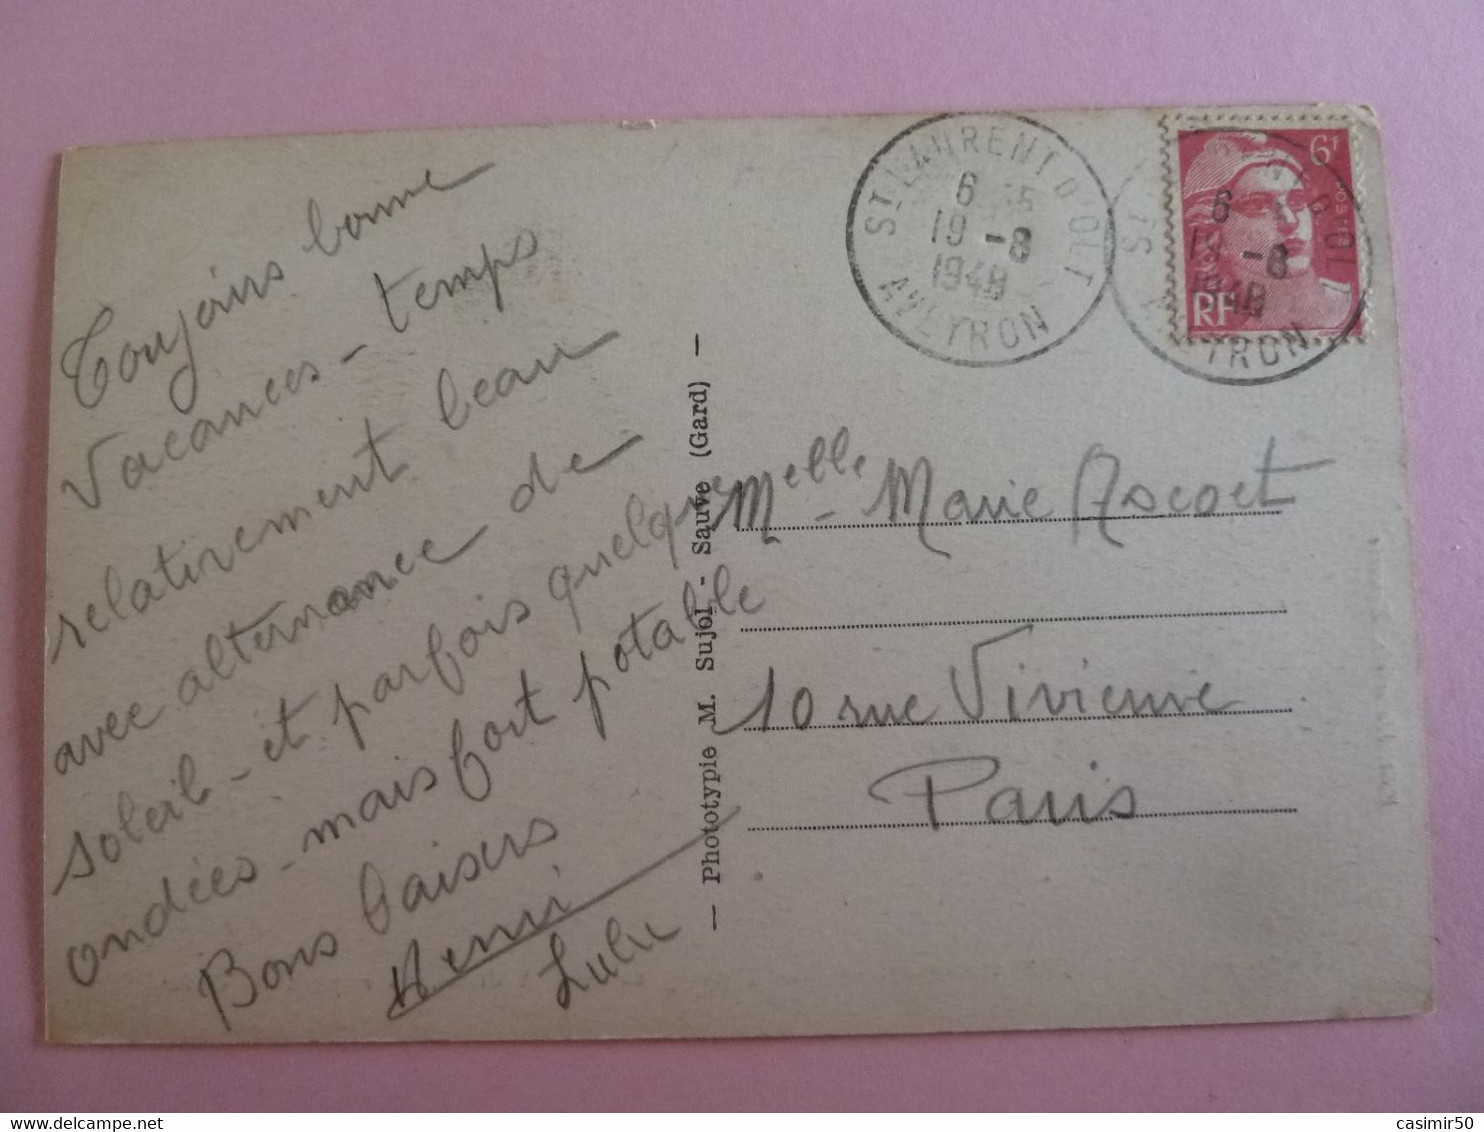 Toujours bonne
vacances - temps
relativement beau
avec alternance de
soleil - et parfois quelques
ondées - mais fort potable
Bons baisers
Henri
Lulu
— Phototypie M. Sujol - Sauve (Gard) —
ST LAURENT D'OLT
6
19 -8
1948
AVEYRON
6F
POSTES
RF
6
19 -8
1948
Melle - Marie Ascoet
10 rue Vivienne
Paris
casimir50